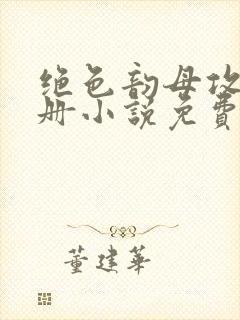 绝色韵母攻
册小说免费
董建华